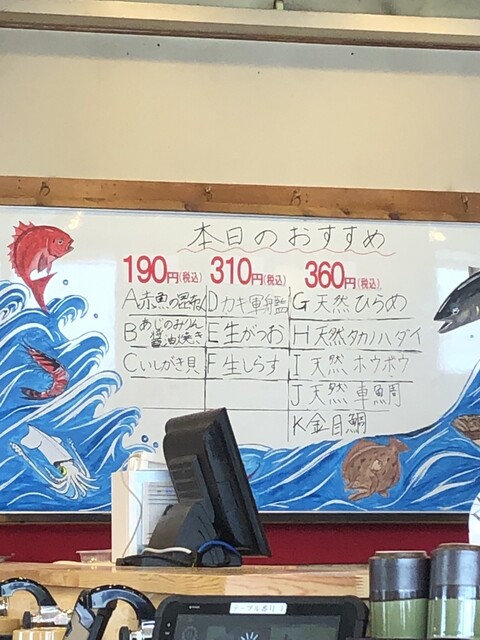 本日のおすすめ
190円(税込) 310円(税込) 360円(税込)
A 赤魚の昆布〆 D カキ軍艦 G 天然ひらめ
B あじのみりん醤油焼き E 生がつお H 天然タカノハダイ
C いしがき貝 F 生しらす I 天然 ホウボウ
J 天然 車鯛
K 金目鯛
テーブル番号